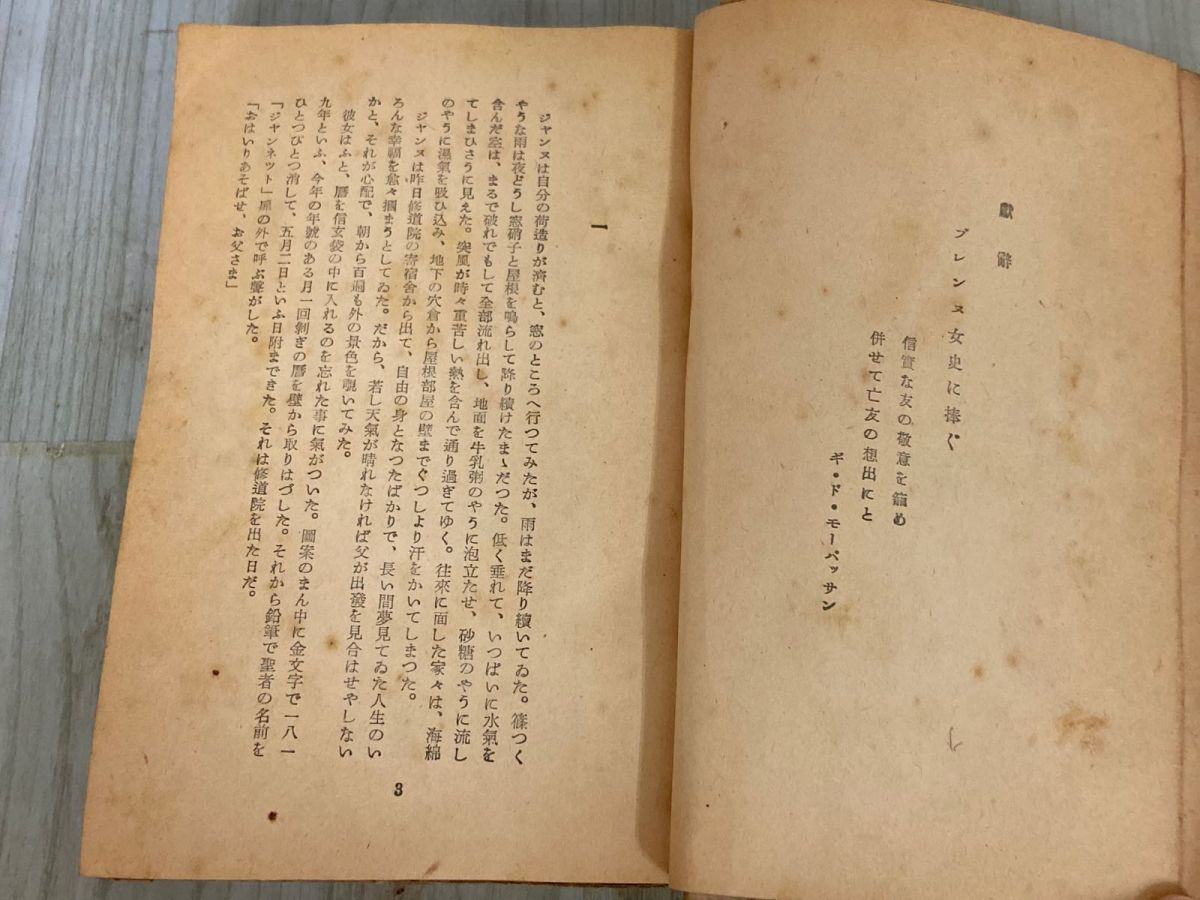 獻辭
ブレンヌ女史に捧ぐ
信實な友の敬意を籠め
併せて亡友の想出にと
ギ・ド・モーパッサン
一
ジャンヌは自分の荷造りが濟むと、窓のところへ行つてみたが、雨はまだ降り續いてゐた。篠つく
やうな雨は夜どうし窓硝子と屋根を鳴らして降り續けたまゝだつた。低く垂れて、いつぱいに水氣を
含んだ空は、まるで破れでもして全部流れ出し、地面を牛乳粥のやうに泡立たせ、砂糖のやうに流し
てしまひさうに見えた。突風が時々重苦しい熱を含んで通り過ぎてゆく。往來に面した家々は、海綿
のやうに濕氣を吸ひ込み、地下の穴倉から屋根部屋の壁までぐつしより汗をかいてしまつた。
ジャンヌは昨日修道院の寄宿舍から出て、自由の身となつたばかりで、長い間夢見てゐた人生のい
ろんな幸福を愈々摑まうとしてゐた。だから、若し天氣が晴れなければ父が出發を見合はせやしない
かと、それが心配で、朝から百遍も外の景色を覗いてみた。
彼女はふと、曆を信玄袋の中に入れるのを忘れた事に氣がついた。圖案のまん中に金文字で一八一
九年といふ、今年の年號のある月一回剝ぎの曆を壁から取りはづした。それから鉛筆で聖者の名前を
ひとつびとつ消して、五月二日といふ日附まできた。それは修道院を出た日だ。
「ジヤンネット」扉の外で呼ぶ聲がした。
「おはいりあそばせ、お父さま」
3